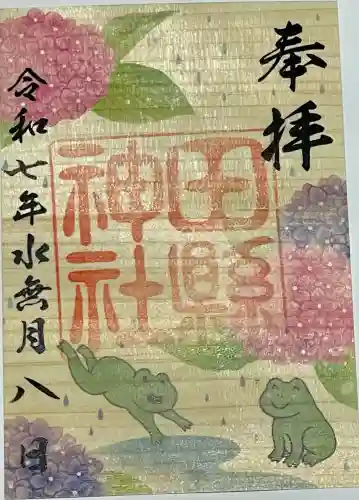 奉拝
田縣神社
令和七年水無月八日